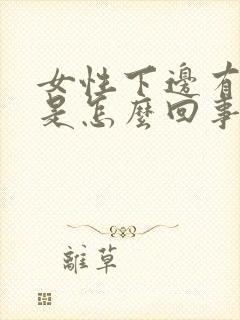 女性下邊有
是怎麼回事
離草